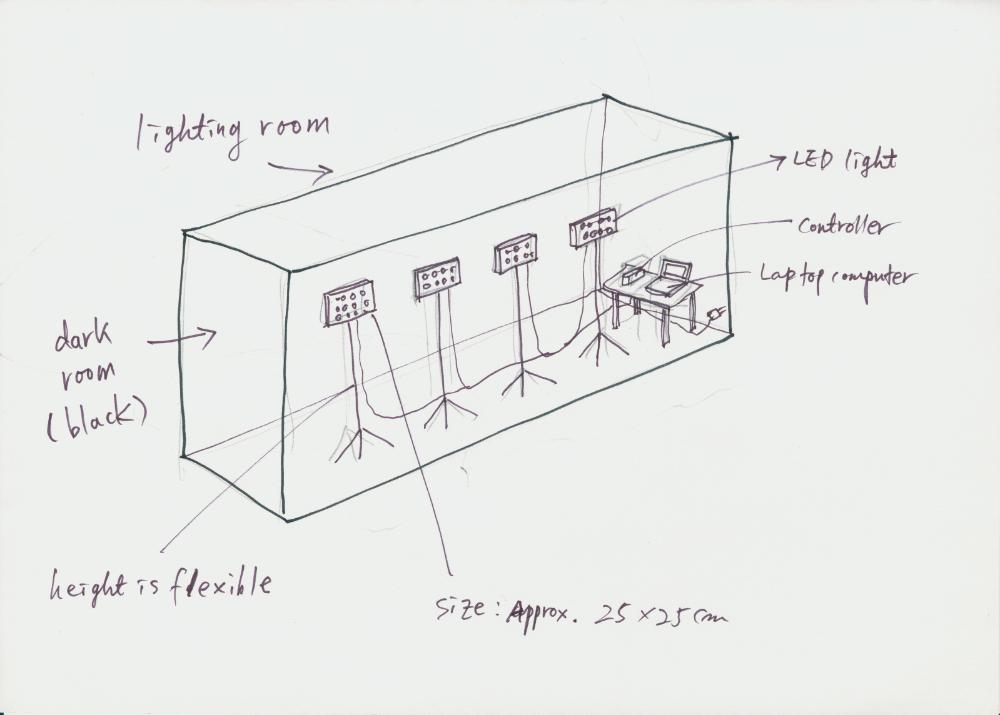 lighting room
LED light
Controller
Laptop computer
dark
room
(black)
height is flexible
size: Approx. 25×25cm